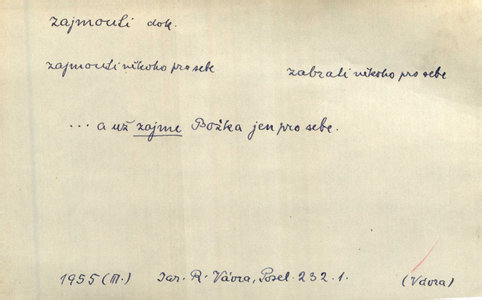 zajmouti dok.
zajmouti někoho pro sebe zabrati někoho pro sebe
... a už zajme Božka jen pro sebe.
1955 (M.) Jar. R. Vávra, Posel. 232.1. (Vávra)